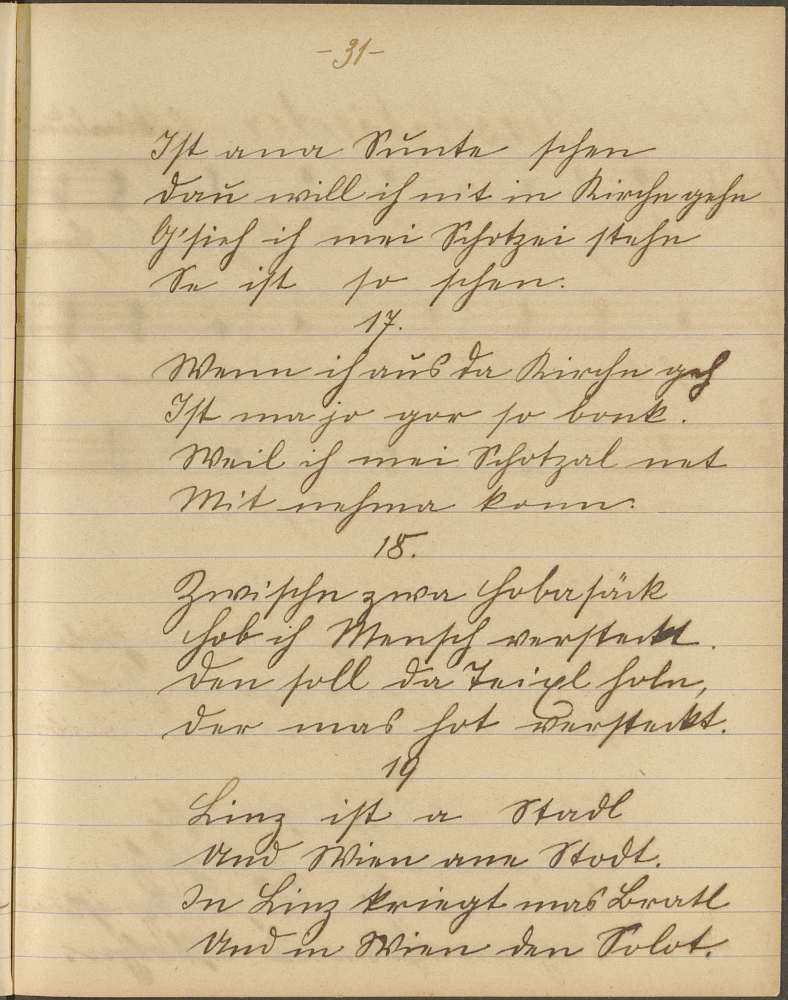 -31-
Ist ana Sunte schen
Dau will ich nit in Kirche gehn
G'sieh ich mei Schotzei stehn
Se ist so schen.
17.
Wenn ich aus da Kirche geh
Ist ma jo gor so bonk.
Weil ich mei Schotzal net
Mit nehma konn.
18.
Zwischn zwa Hobasäck
Hob ich Mensch versteckt.
Den soll da Teixl holn,
Der mas hot versteckt.
19
Linz ist a Stadl
Und Wien ane Stodt.
In Linz kriegt mas Bratl
Und in Wien den Solot.